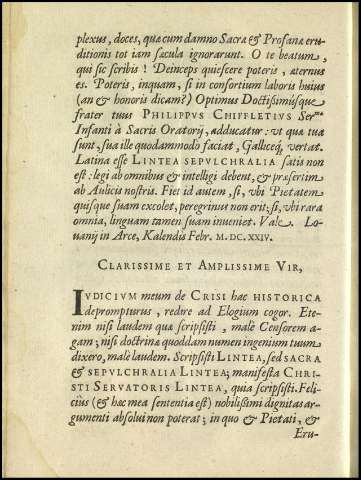 plexus, doces, qua cum damno Sacræ & Profanæ eru-
ditionis tot iam sæcula ignorarunt. O te beatum,
qui sic scribis! Deinceps quiescere poteris, æternus
es. Poteris, inquam, si in consortium laboris huius
(an & honoris dicam?) Optimus Doctissimúsque
frater tuus PHILIPPVS CHIFFLETIVS Ser.mæ
Infanti à Sacris Oratorij, adducatur: vt quæ tua
sunt, sua ille quodammodo faciat, Gallicéq; vertat.
Latina esse LINTEA SEPVLCHRALIA satis non
est: legi ab omnibus & intelligi debent, & præsertim
ab Aulicis nostris. Fiet id autem, si, vbi Pietatem
quisque suam excolet, peregrinus non erit: si, vbi rara
omnia, linguam tamen suam inueniet. Vale. Lo-
uanij in Arce, Kalendis Febr. M. DC. XXIV.
CLARISSIME ET AMPLISSIME VIR,
IVDICIVM meum de CRISI hac HISTORICA
depromturus, redire ad Elogium cogor. Ete-
nim nisi laudem quæ scripsisti, malè Censorem a-
gam; nisi doctrinæ quoddam numen ingenium tuum
dixero, malè laudem. Scripsisti LINTEA, sed SACRA
& SEPVLCHRALIA LINTEA; manifesta CHRI-
STI SERVATORIS LINTEA, quia scripsisti. Feli-
ciùs (& hæc mea sententia est) nobilissimi dignitas ar-
gumenti absolui non poterat; in quo & Pietati, &
Eru-